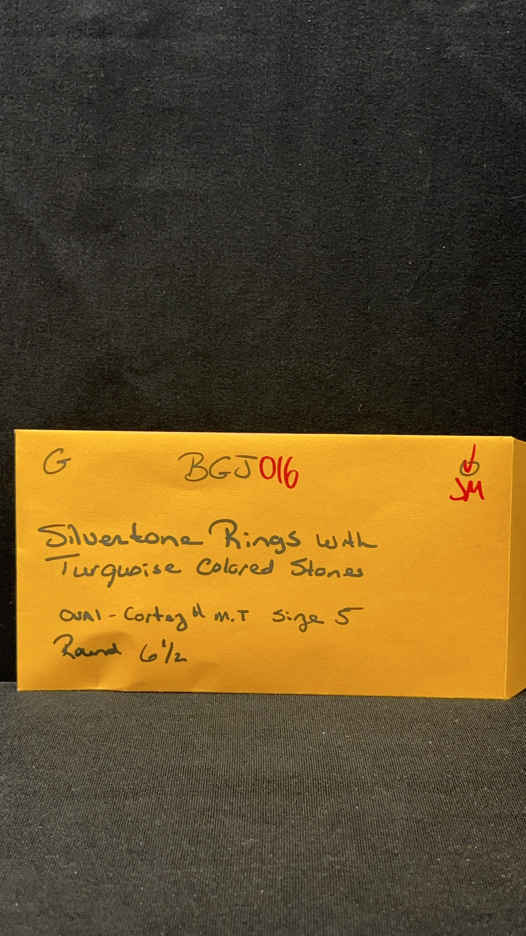 G BGJ016
JM
Silvertone Rings with
Turquoise Colored Stones
OVAl - Cortez H M.T Size 5
Round 6 1/2